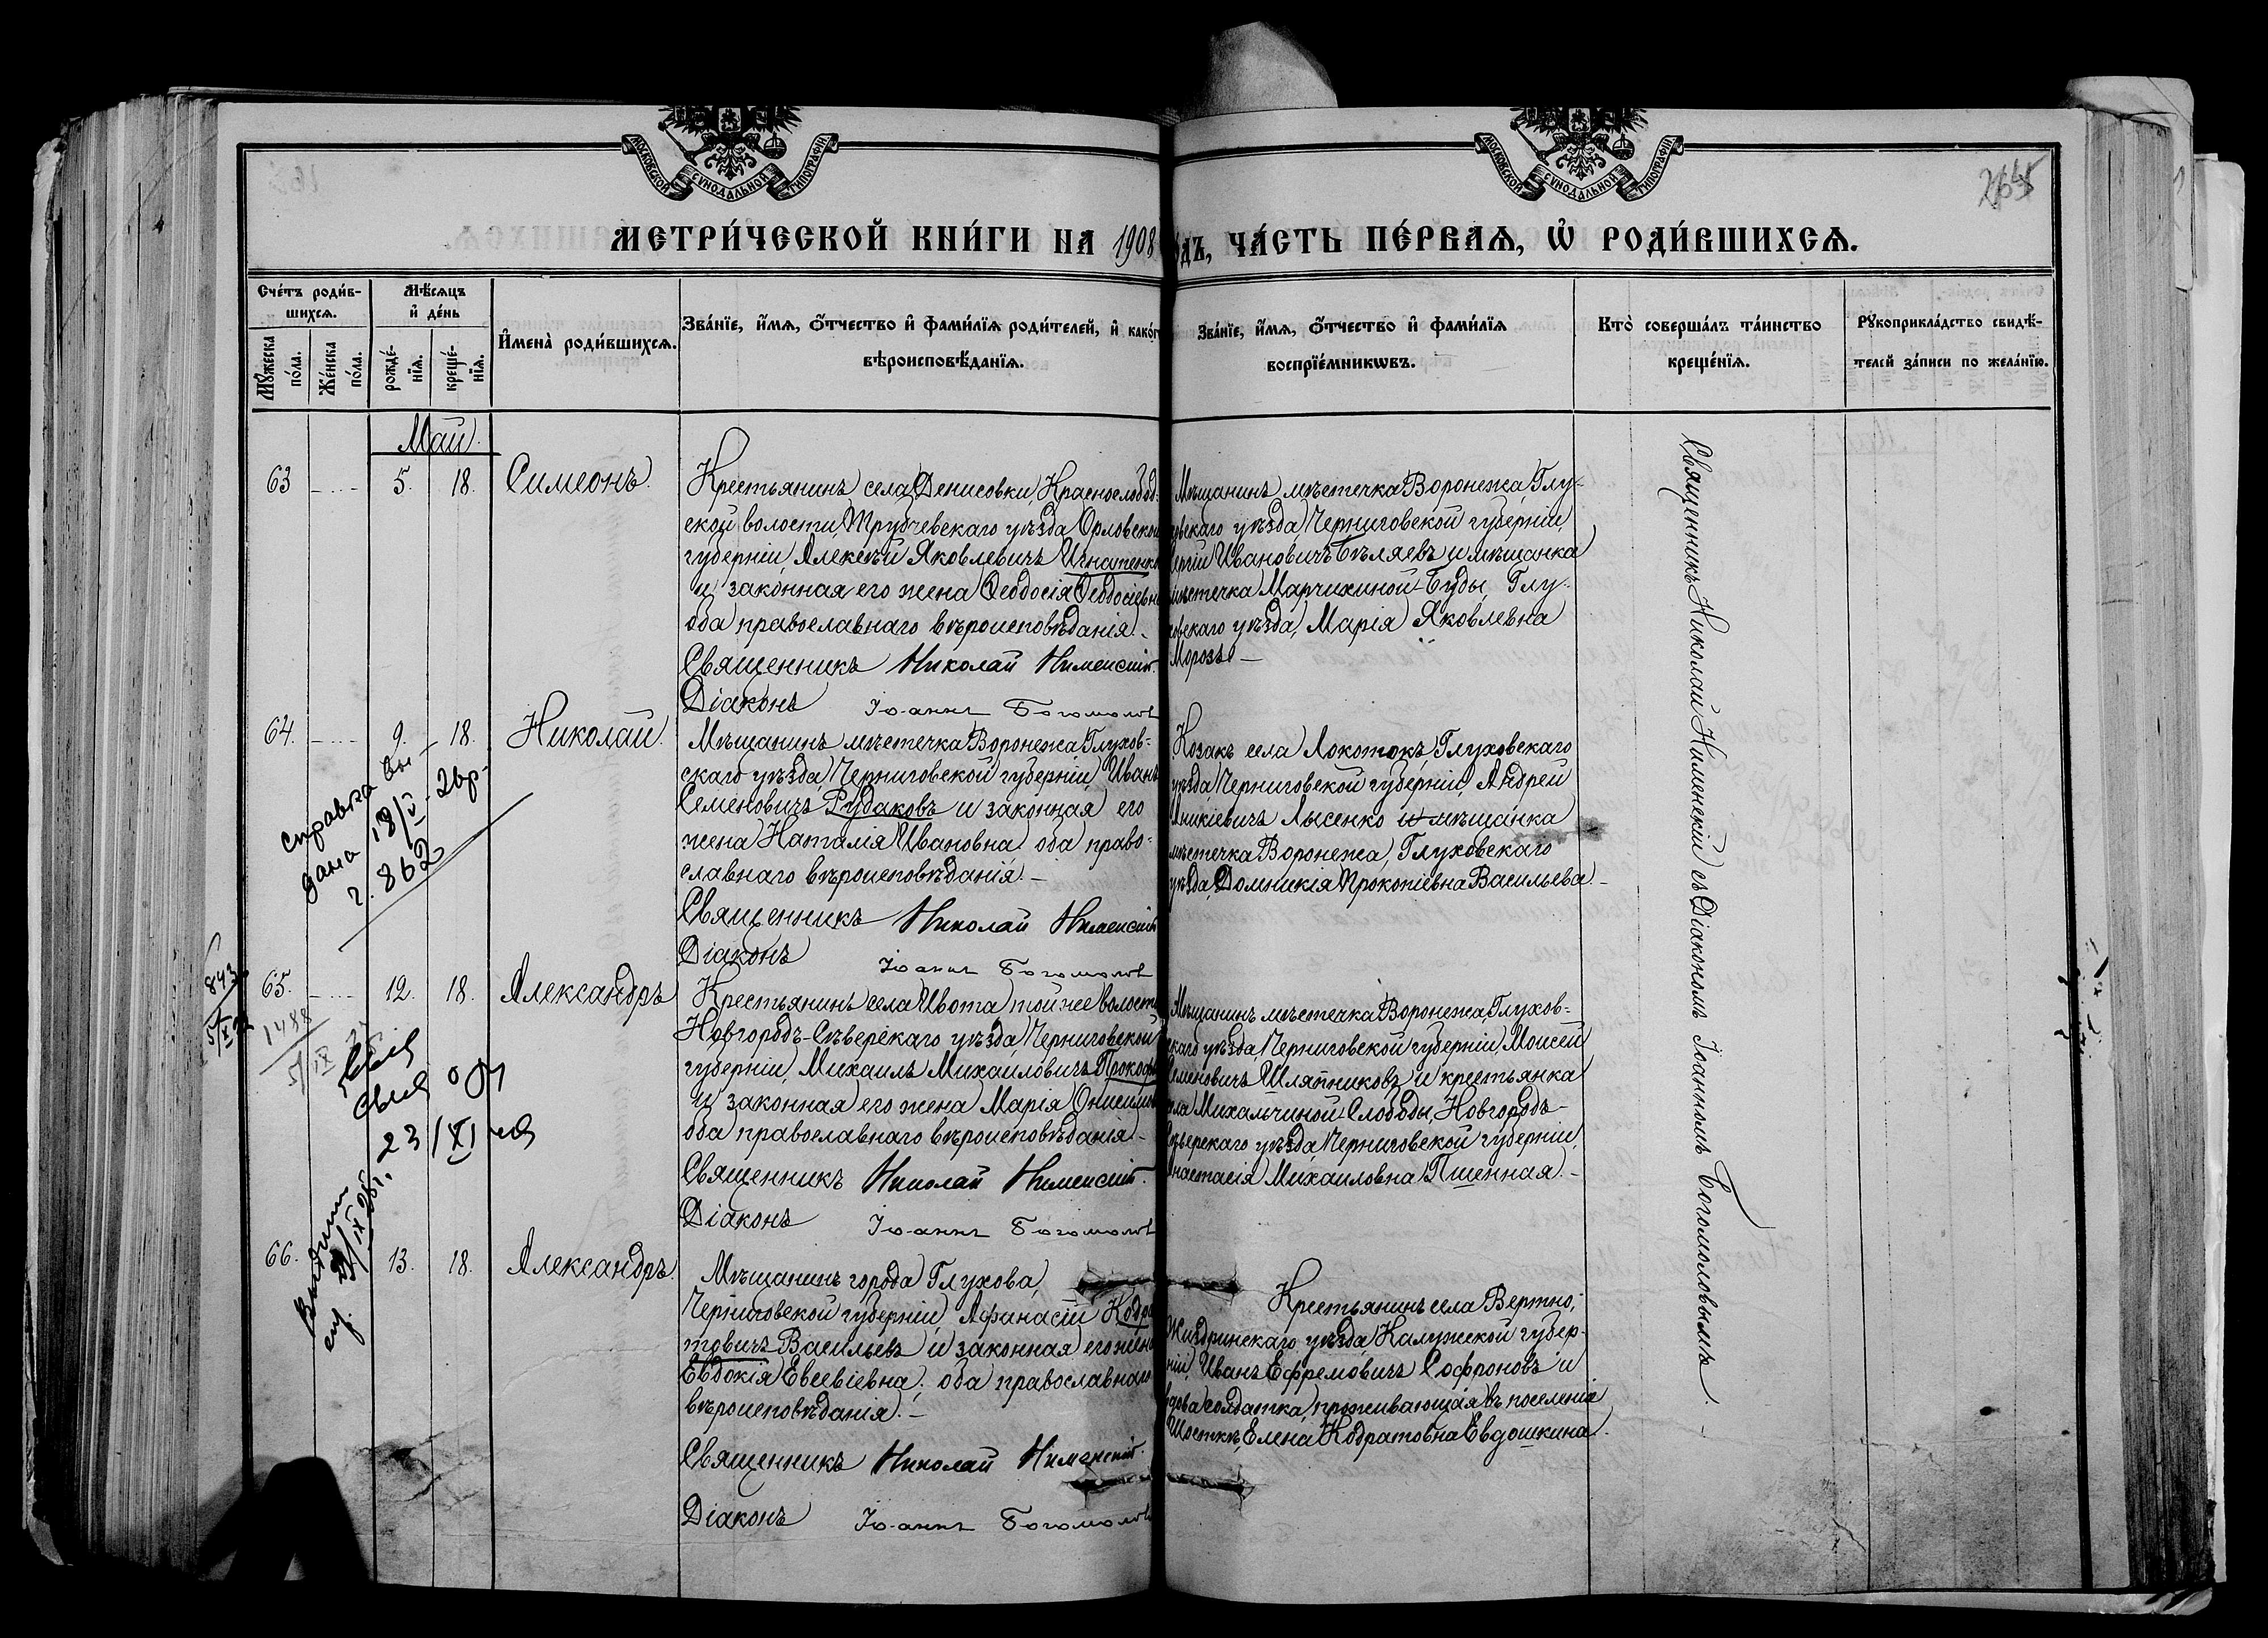 МОСКОВСКОЙ СѴНОДАЛЬНОЙ ТИПОГРАФІИ.
МОСКОВСКОЙ СѴНОДАЛЬНОЙ ТИПОГРАФІИ.
2645
МЕТРИ́ЧЕСКОЙ КНИ́ГИ НА 1908
ДЪ, ЧА́СТЬ ПЕ́РВАѦ, Ѡ҆ РОДИ́ВШИХСѦ.
Сче́тъ роди́в-
шихсѧ.
Мꙋ́жеска
по́ла.
Же́нска
по́ла.
Мѣ́сѧцъ
и҆ де́нь
рожде́-
нїѧ.
креще́-
нїѧ.
И҆мена̀ роди́вшихсѧ.
Зва́нїе, и҆́мѧ, ѻ҆́тчество и҆ фами́лїѧ роди́телей, и҆ како́г
вѣроисповѣ́данїѧ.
Зва́нїе, и҆́мѧ, ѻ҆́тчество и҆ фами́лїѧ
воспрїе́мникѡвъ.
Кто̀ соверша́лъ та́инство
креще́нїѧ.
Рꙋкоприкла́дство свидѣ́-
телей за́писи по жела́нїю.
Май.
63 5. 18. Симеонъ.
Крестьянинъ села Денисовки, Краснослобод-
ской волости, Трубчевскаго уѣзда Орловской
губерніи, Алексѣй Яковлевичъ Игнатенк
и законная его жена Ѳеодосія Ѳеодосіевна
оба православнаго вѣроисповѣданія.-
Священникъ Николай Нименскій.
Діаконъ Іоаннъ Богомолов
Мѣщанинъ мѣстечка Воронежа, Глу-
ховскаго уѣзда, Черниговской губерніи,
ергій Ивановичъ Бѣляевъ и мѣщанка
мѣстечка Марчихиной-Буды, Глу-
ховскаго уѣзда, Марія Яковлевна
Морозъ-
64. 9. 18. Николай.
Мѣщанинъ мѣстечка Воронежа Глухов-
скаго уѣзда, Черниговской губерніи, Иванъ
Семеновичъ Рудаковъ и законная его
жена Наталія Ивановна, оба право-
славнаго вѣроисповѣданія.-
Священникъ Николай Нименскій
Діаконъ Іоаннъ Богомолов
Козакъ села Локотокъ, Глуховскаго
уѣзда, Черниговской губерніи, Андрей
Аникіевичъ Лысенко и мѣщанка
мѣстечка Воронежа, Глуховскаго
уѣзда, Домникія Прокопіевна Васильева.-
справка вы-
дана 18/V-26р.
г. 862
65. 12. 18. Александръ
843
5/X
1488
5/IX
23/XI
Крестьянинъ села Ивота, той же волости
Новгородъ-Сѣверскаго уѣзда, Черниговской
губерніи, Михаилъ Михайловичъ Прокоф
и законная его жена Марія Онисимов
оба православнаго вѣроисповѣданія.-
Священникъ Николай Нименскій.
Діаконъ Іоаннъ Богомолов
Мѣщанинъ мѣстечка Воронежа, Глухов-
скаго уѣзда, Черниговской губерніи, Моисей
Семеновичъ Шляпниковъ и крестьянка
ела Михальчиной-Слободы, Новгородъ-
Сѣверскаго уѣзда, Черниговской губерніи,
Анастасія Михаиловна Пшенная.-
66. 13. 18. Александръ.
Мѣщанинъ города Глухова,
Черниговской губерніи, Афанасій Кодра
товичъ Васильевъ и законная его жена
Евдокія Евсевіевна; оба православнаго
вѣроисповѣданія.-
Священникъ Николай Нименскій.
Діаконъ Іоаннъ Богомолов
Крестьянинъ села Вертно,
Жиздринскаго уѣзда, Калужской губер-
ніи, Иванъ Ефремовичъ Софроновъ и
вдова солдатка, проживающая въ поселеніи
Шосткѣ, Елена Кодратовна Евдошкина.
Священникъ Николай Нименскій съ Діакономъ Іоанномъ Богомоловымъ.-